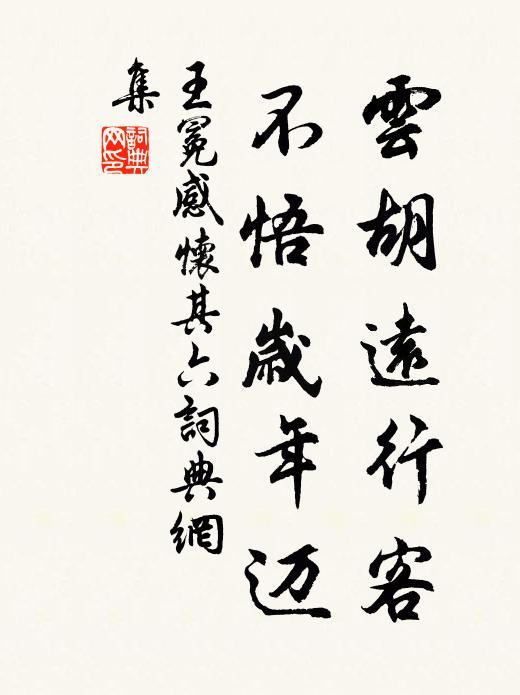 雲胡遠行客
不悟歲年迈
王冕感懷其六詞典網
集
詞典
网印